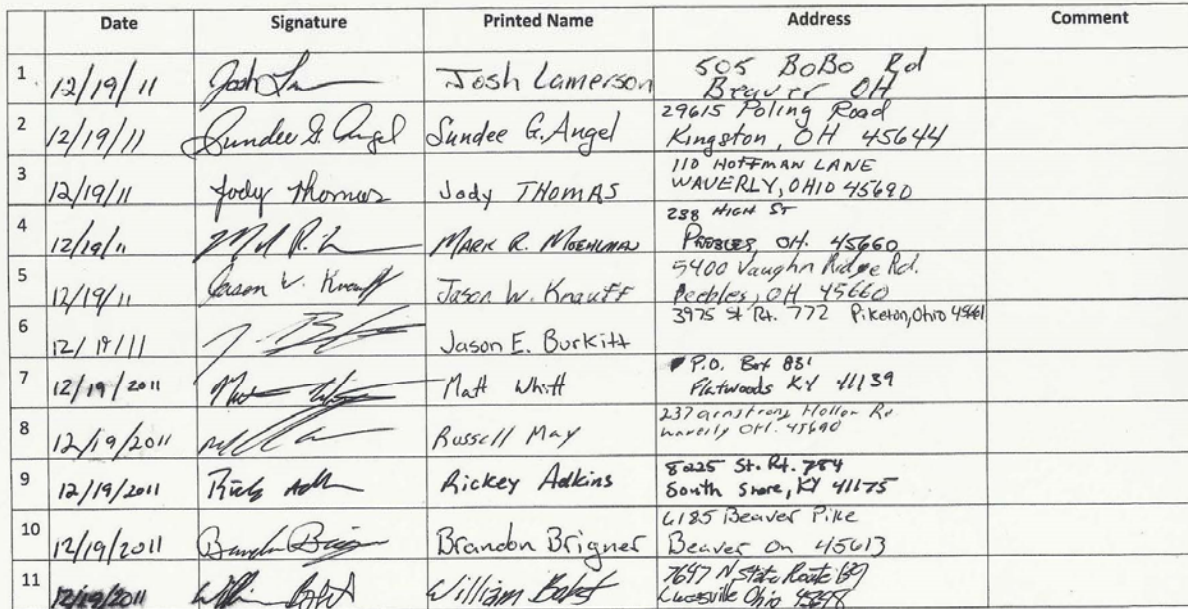 Date Signature Printed Name Address Comment
1 12/19/11 Josh Lamerson 505 BoBo Rd
Beaver OH
2 12/19/11 Sundee G. Angel Sundee G. Angel 29615 Poling Road
Kingston, OH 45644
3 12/19/11 Jody Thomas Jody THOMAS 110 HOFFMAN LANE
WAVERLY, OHIO 45690
4 12/19/11 MARK R. MOEHLMAN 238 HIGH ST
PEEBLES, OH. 45660
5 12/19/11 Jason W. Knauff Jason W. Knauff 5400 Vaughn Ridge Rd.
Peebles, OH 45660
6 12/19/11 Jason E. Burkitt 3975 St Rt. 772 Piketon, Ohio 45661
7 12/19/2011 Matt Whitt P.O. Box 831
Flatwoods KY 41139
8 12/19/2011 Russell May 237 armstrong Hollow Rd
waverly OH. 45690
9 12/19/2011 Rickey Adkins 8225 St. Rt. 784
South Shore, KY 41175
10 12/19/2011 Brandon Brigner 6185 Beaver Pike
Beaver OH 45613
11 12/19/2011 William 7647 N State Route
Lucasville Ohio